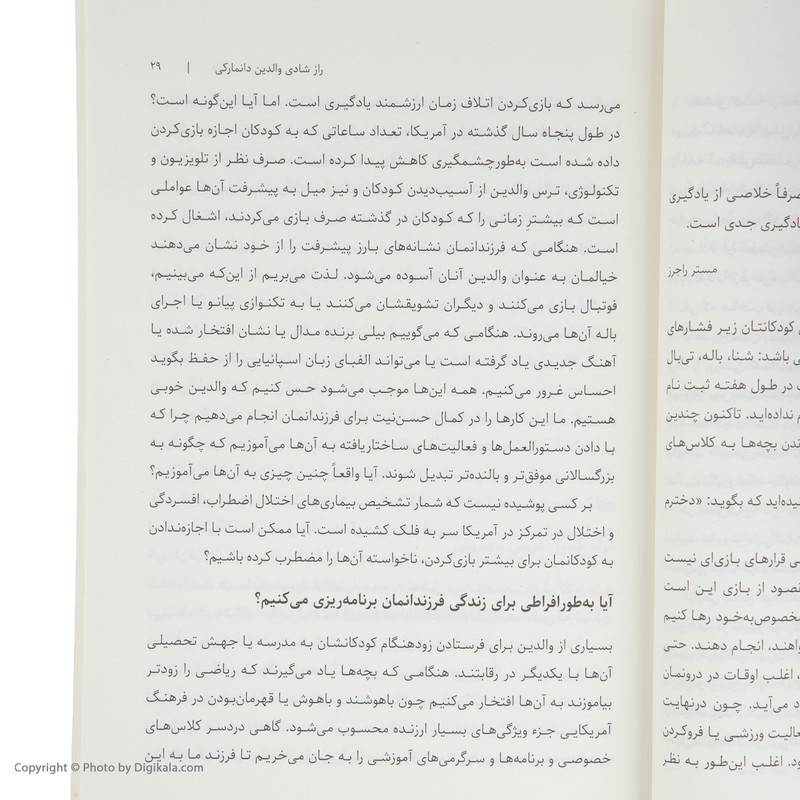 صرفاً خلاصی از یادگیری
یادگیری جدی است.
مستر راجرز
کودکانتان زیر فشارهای
ی باشد: شنا، باله، تی‌بال
در طول هفته ثبت نام
م نداده‌اید. تاکنون چندین
ندن بچه‌ها به کلاس‌های
شیده‌اید که بگوید: «دخترم
ی قرارهای بازی‌ای نیست
قصود از بازی این است
مخصوص‌به‌خود رها کنیم
واهند، انجام دهند. حتی
، اغلب اوقات در درونمان
د می‌آید. چون درنهایت
عالیت ورزشی یا فروکردن
ود. اغلب این‌طور به نظر
راز شادی والدین دانمارکی | ۲۹
می‌رسد که بازی‌کردن اتلاف زمان ارزشمند یادگیری است. اما آیا این‌گونه است؟
در طول پنجاه سال گذشته در آمریکا، تعداد ساعاتی که به کودکان اجازه بازی‌کردن
داده شده است به‌طورچشمگیری کاهش پیدا کرده است. صرف نظر از تلویزیون و
تکنولوژی، ترس والدین از آسیب‌دیدن کودکان و نیز میل به پیشرفت آن‌ها عواملی
است که بیشترِ زمانی را که کودکان در گذشته صرف بازی می‌کردند، اشغال کرده
است. هنگامی که فرزندانمان نشانه‌های بارز پیشرفت را از خود نشان می‌دهند
خیالمان به عنوان والدین آنان آسوده می‌شود. لذت می‌بریم از این‌که می‌بینیم،
فوتبال بازی می‌کنند و دیگران تشویقشان می‌کنند یا به تکنوازی پیانو یا اجرای
باله آن‌ها می‌روند. هنگامی که می‌گوییم بیلی برنده مدال یا نشان افتخار شده یا
آهنگ جدیدی یاد گرفته است یا می‌تواند الفبای زبان اسپانیایی را از حفظ بگوید
احساس غرور می‌کنیم. همه این‌ها موجب می‌شود حس کنیم که والدین خوبی
هستیم. ما این کارها را در کمال حسن‌نیت برای فرزندانمان انجام می‌دهیم چرا که
با دادن دستورالعمل‌ها و فعالیت‌های ساختاریافته به آن‌ها می‌آموزیم که چگونه به
بزرگسالانی موفق‌تر و بالنده‌تر تبدیل شوند. آیا واقعاً چنین چیزی به آن‌ها می‌آموزیم؟
بر کسی پوشیده نیست که شمار تشخیص بیماری‌های اختلال اضطراب، افسردگی
و اختلال در تمرکز در آمریکا سر به فلک کشیده است. آیا ممکن است با اجازه‌ندادن
به کودکانمان برای بیشتر بازی‌کردن، ناخواسته آن‌ها را مضطرب کرده باشیم؟
آیا به‌طورافراطی برای زندگی فرزندانمان برنامه‌ریزی می‌کنیم؟
بسیاری از والدین برای فرستادن زودهنگام کودکانشان به مدرسه یا جهش تحصیلی
آن‌ها با یکدیگر در رقابتند. هنگامی که بچه‌ها یاد می‌گیرند که ریاضی را زودتر
بیاموزند به آن‌ها افتخار می‌کنیم چون باهوشند و باهوش یا قهرمان‌بودن در فرهنگ
آمریکایی جزء ویژگی‌های بسیار ارزنده محسوب می‌شود. گاهی دردسر کلاس‌های
خصوصی و برنامه‌ها و سرگرمی‌های آموزشی را به جان می‌خریم تا فرزند ما به این
Copyright © Photo by Digikala.com